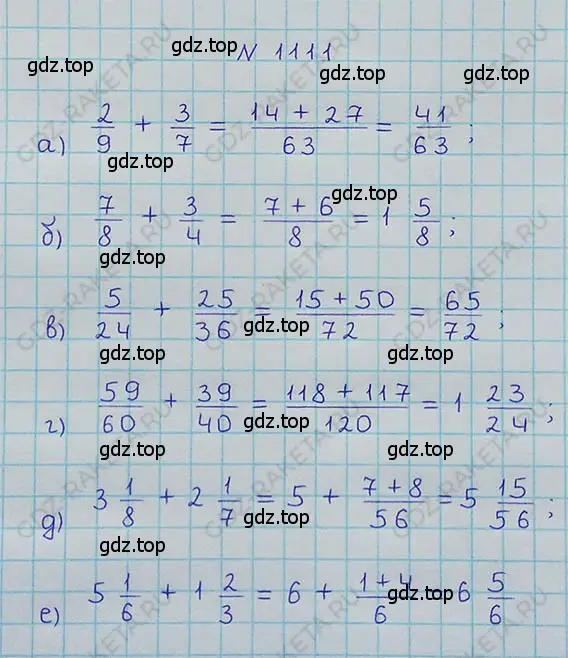 № 1111
gdz.top gdz.top gdz.top
а) 2/9 + 3/7 = (14 + 27)/63 = 41/63 ;
gdz.top gdz.top
б) 7/8 + 3/4 = (7 + 6)/8 = 1 5/8 ;
gdz.top
в) 5/24 + 25/36 = (15 + 50)/72 = 65/72 ;
gdz.top gdz.top gdz.top
г) 59/60 + 39/40 = (118 + 117)/120 = 1 23/24 ;
gdz.top gdz.top gdz.top
д) 3 1/8 + 2 1/7 = 5 + (7 + 8)/56 = 5 15/56 ;
gdz.top gdz.top gdz.top
е) 5 1/6 + 1 2/3 = 6 + (1 + 4)/6 6 5/6
gdz.top gdz.top
GDZ-RAKETA.RU